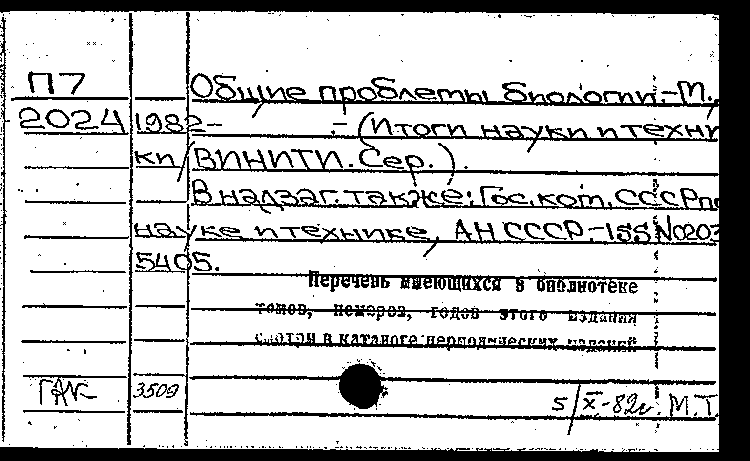 П7
2024
Общие проблемы биологии.-М.,
1982- .- (Итоги науки и техни
ки/ВИНИТИ. Сер.).
В надзаг. также: Гос. ком. СССР по
науке и технике, АН СССР.-ISSN 0203
5405.
Перечень имеющихся в библиотеке
томов, номеров, годов этого издания
смотри в каталоге периодических изданий
ГАК 3509
5/X-82г. М.Т.